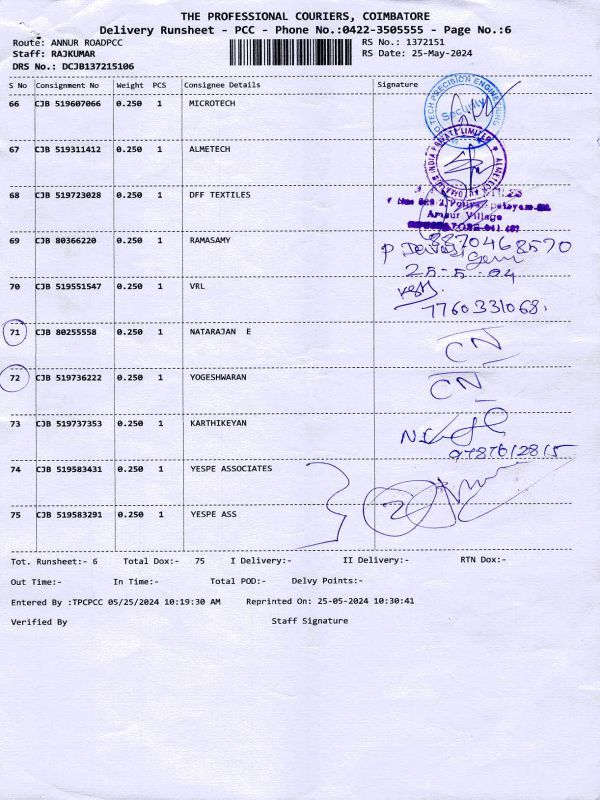 THE PROFESSIONAL COURIERS, COIMBATORE
Delivery Runsheet - PCC - Phone No.:0422-3505555 - Page No.:6
Route: ANNUR ROADPCC
RS No.: 1372151
Staff: RAJKUMAR
RS Date: 25-May-2024
DRS No.: DCJB137215106
S No Consignment No Weight PCS Consignee Details Signature
66 CJB 519607066 0.250 1 MICROTECH
TECH PRECISION ENGINEERING
Security
67 CJB 519311412 0.250 1 ALMETECH
INDIA PRIVATE LIMITED
ALMETECH
68 CJB 519723028 0.250 1 DFF TEXTILES
Annur Village
69 CJB 80366220 0.250 1 RAMASAMY
9370468570
25-5-04
70 CJB 519551547 0.250 1 VRL
7760331068.
71 CJB 80255558 0.250 1 NATARAJAN E
CN
72 CJB 519736222 0.250 1 YOGESHWARAN
CN
73 CJB 519737353 0.250 1 KARTHIKEYAN
9787612815
74 CJB 519583431 0.250 1 YESPE ASSOCIATES
2
75 CJB 519583291 0.250 1 YESPE ASS
Tot. Runsheet:- 6 Total Dox:- 75 I Delivery:- II Delivery:- RTN Dox:-
Out Time:- In Time:- Total POD:- Delvy Points:-
Entered By :TPCPCC 05/25/2024 10:19:30 AM Reprinted On: 25-05-2024 10:30:41
Verified By Staff Signature